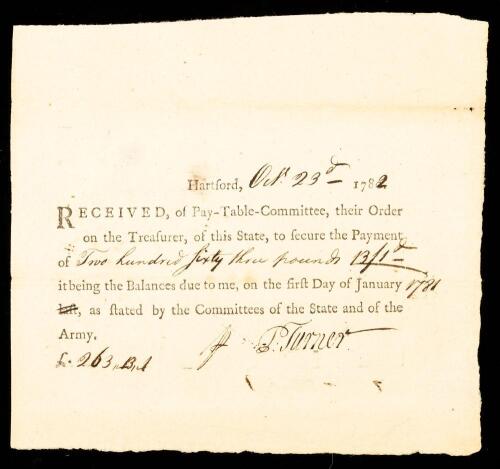 Hartford, Octr 23d 1782
RECEIVED, of Pay-Table-Committee, their Order
on the Treasurer, of this State, to secure the Payment
of Two hundred sixty three pounds 13/1d
it being the Balances due to me, on the first Day of January 1781
last, as stated by the Committees of the State and of the
Army.
P. Turner
£. 263,,13,,1